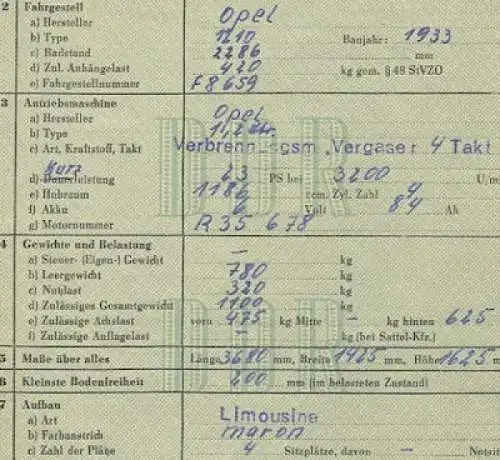 2 Fahrgestell
a) Hersteller Opel
b) Type Baujahr: 1933
c) Radstand 2286 mm
d) Zul. Anhängelast 420 kg gem. § 48 StVZO
e) Fahrgestellnummer F8659
3 Antriebsmaschine
a) Hersteller Opel
b) Type 1,2 Ltr.
c) Art, Kraftstoff, Takt Verbrennungsm. Vergaser 4 Takt
d) Kurzleistung 23 PS bei 3200 U/mi
e) Hubraum 1186 ccm. Zyl. Zahl 4
f) Akku 6 Volt 84 Ah
g) Motornummer R35 678
4 Gewichte und Belastung
a) Steuer- (Eigen-) Gewicht – kg
b) Leergewicht 780 kg
c) Nutzlast 320 kg
d) Zulässiges Gesamtgewicht 1100 kg
e) Zulässige Achslast vorn 475 kg Mitte – kg hinten 625
f) Zulässige Auflagelast – kg (bei Sattel-Kfz.)
5 Maße über alles Länge 3680 mm, Breite 1425 mm, Höhe 1625 m
6 Kleinste Bodenfreiheit 200 mm (im belasteten Zustand)
7 Aufbau
a) Art Limousine
b) Farbanstrich maron
c) Zahl der Plätze 4 Sitzplätze, davon – Notsit
DDR
DDR